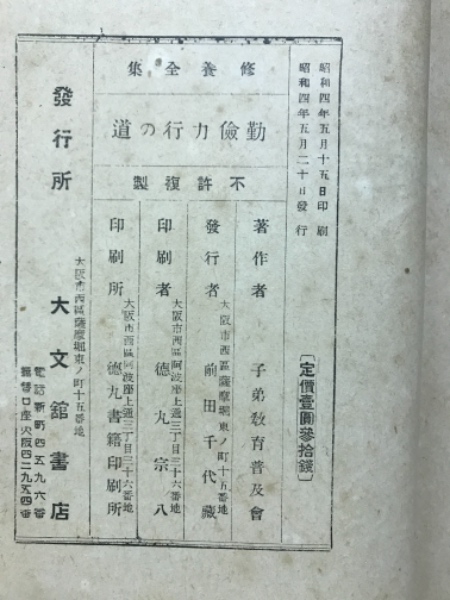 昭和四年五月十五日印刷
昭和四年五月二十日發行
〔定價壹圓參拾錢〕
修養全集
勤儉力行の道
不許複製
著作者 子弟教育普及會
大阪市西區薩摩堀東ノ町十五番地
發行者 前田千代藏
大阪市西區阿波座上通三丁目三十六番地
印刷者 德九宗八
大阪市西區阿波座上通三丁目三十六番地
印刷所 德九書籍印刷所
大阪市西區薩摩堀東ノ町十五番地
發行所 大文館書店
電話新町四五九六番
振替口座大阪四二九五四番